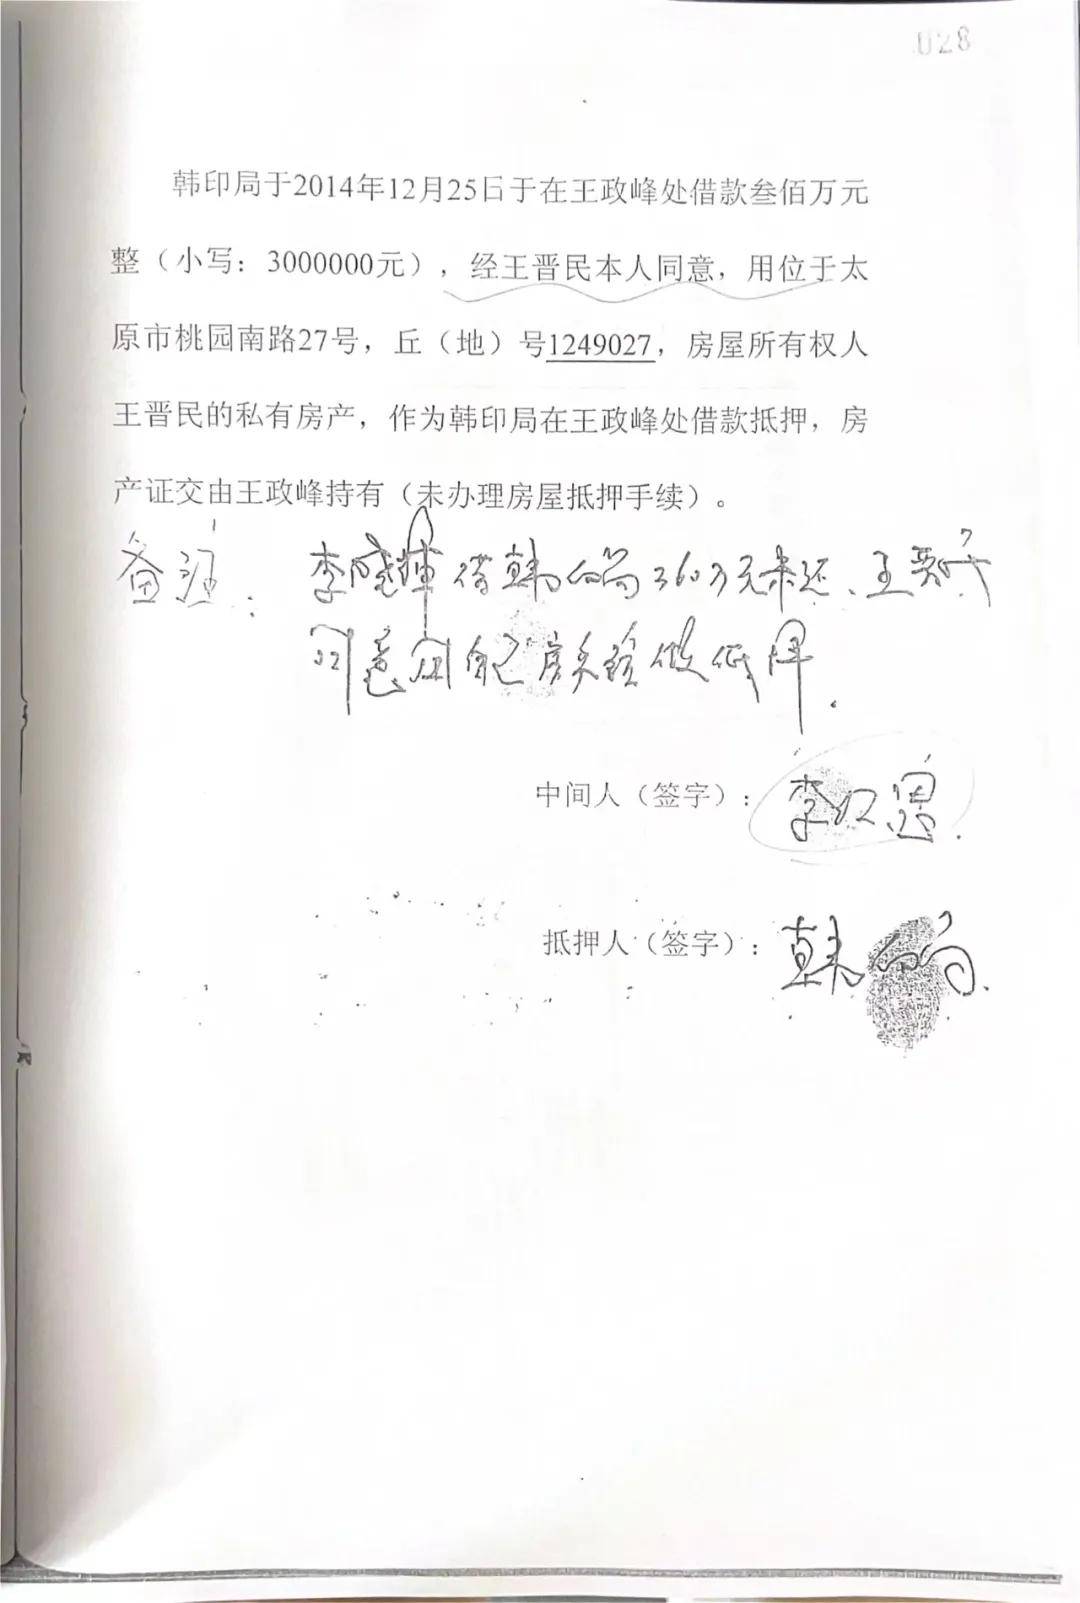 028
韩印局于2014年12月25日于在王政峰处借款叁佰万元
整（小写：3000000元），经王晋民本人同意，用位于太
原市桃园南路27号，丘（地）号1249027，房屋所有权人
王晋民的私有房产，作为韩印局在王政峰处借款抵押，房
产证交由王政峰持有（未办理房屋抵押手续）。
备注：李晓辉借韩印局360万元未还、王晋民
同意用自己房产证做低押.
中间人（签字）：李红恩
抵押人（签字）：韩印局